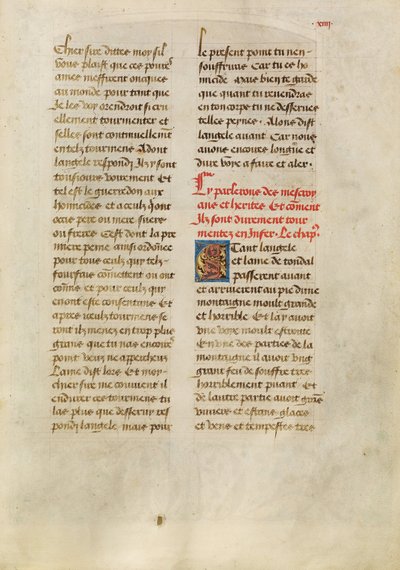 xiiii
Chier sire dittes moy s'il
vous plaist que ces poures
ames meffirent oncques
au monde pour tant que
Je les voy orendroit si cru
ellement tourmenter et
selles sont continuellement
en telz tourmens Adont
langele respondi Ilz y sont
tousiours voirement Et
tel est le guerredon aux
homicides et a ceulz qui ont
occis pere ou mere suers
ou freres Cest dont la pre
miere peine ainsi ordonnee
pour tous ceulz qui telz
fourfais commettent ou ont
commis et pour ceulz qui
en ont este consentans Et
apres ceulz tourmens se
ront ilz menez en trop plus
grans que tu nas encores
point veuz ne apperceuz
Lame dist lors Et moy
chier sire me convient il
endurer ces tourmens tu
las plus que desservy res
pondi langele mais pour
le present point tu nen
souffriras Car tu es ho
micide Mais bien te garde
que quant tu revendras
en ton corps tu ne desserves
telles peynes Alons dist
langele avant Car nous
avons encores longue et
dure voye a faire et aler
Ey parlerons des mescroy
ans et herites Et coment
Ilz sont durement tour
mentez en Infer Le chap
Etant langele
et lame de tondal
passerent avant
et arriverent au pie dune
montaigne moult grande
et horrible Et la y avoit
une voye moult estroite
En une des parties de la
montaigne il avoit ung
grant feu de souffre tres
horriblement puant Et
de lautre partie avoit grans
rivieres et estans glaces
et vens et tempestes tres